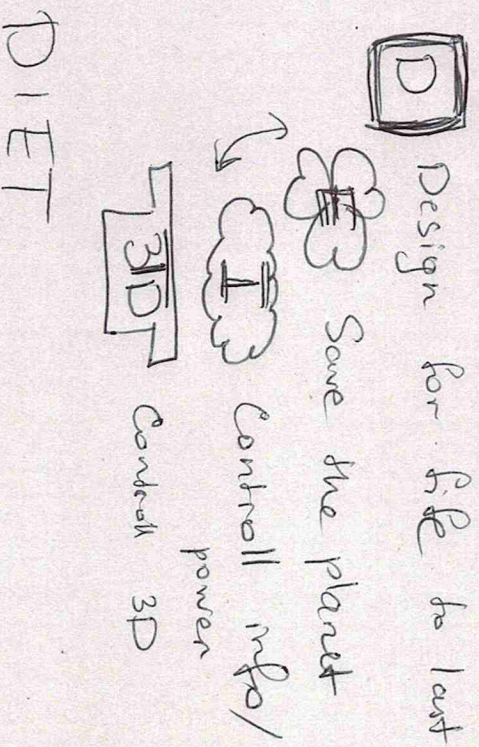 D Design for life to last
E Save the planet
I Controll info/
power
3D Controll 3D
DIET